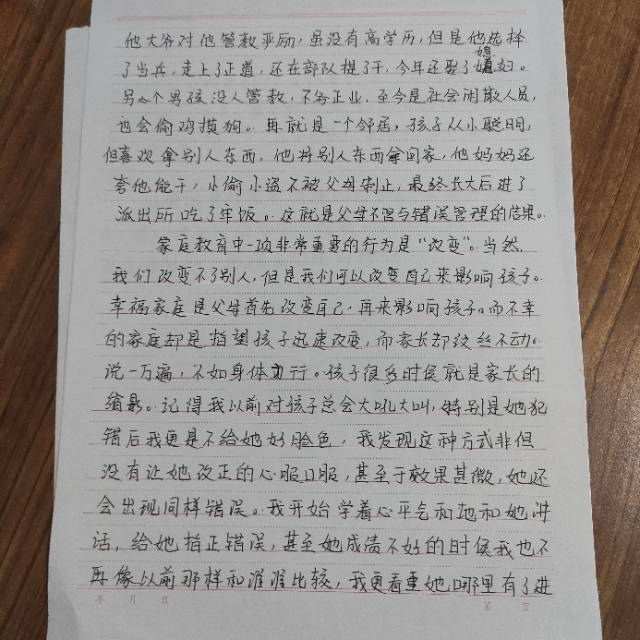 他大爷对他管教严厉，虽没有高学历，但是他选择
了当兵，走上了正道，还在部队提了干，今年还娶了媳妇。
另外个男孩没人管教，不务正业，至今是社会闲散人员，
也会偷鸡摸狗。再就是一个邻居，孩子从小聪明，
但喜欢拿别人东西，他将别人东西拿回家，他妈妈还
夸他能干，小偷小盗不被父母制止，最终长大后进了
派出所吃了牢饭。这就是父母不管与错误管理的结果。
家庭教育中一项非常重要的行为是“改变”。当然，
我们改变不了别人，但是我们可以改变自己来影响孩子。
幸福家庭是父母首先改变自己，再来影响孩子。而不幸
的家庭却是指望孩子迅速改变，而家长却纹丝不动。
说一万遍，不如身体力行。孩子很多时候就是家长的
缩影。记得我以前对孩子总会大吼大叫，特别是她犯
错后我更是不给她好脸色，我发现这种方式非但
没有让她改正的心服口服，甚至于效果甚微，她还
会出现同样错误。我开始学着心平气和地和她讲
话，给她指正错误，甚至她成绩不好的时候我也不
再像以前那样和谁谁比较，我更看重她哪里有了进
年 月 日 第 页